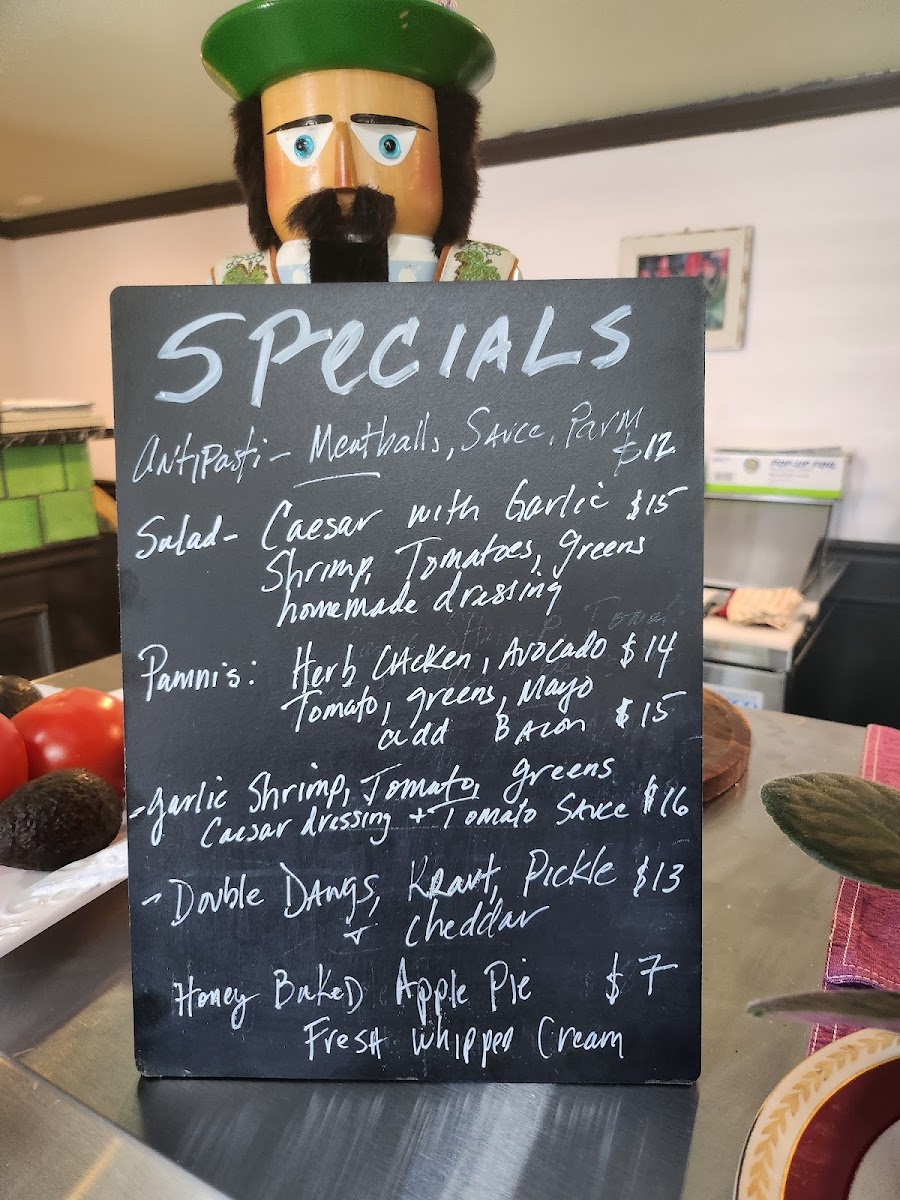 SPECIALS
Antipasti - Meatballs, Sauce, Parm
$12
Salad - Caesar with Garlic $15
Shrimp, Tomatoes, greens
homemade dressing
Pannnis: Herb Chicken, Avocado $14
Tomato, greens, Mayo
add Bacon $15
- Garlic Shrimp, Tomato, greens
Caesar dressing + Tomato Sauce $16
- Double Dawgs, Kraut, Pickle $13
+ cheddar
Honey Baked Apple Pie $7
Fresh Whipped Cream
POP-UP FOIL